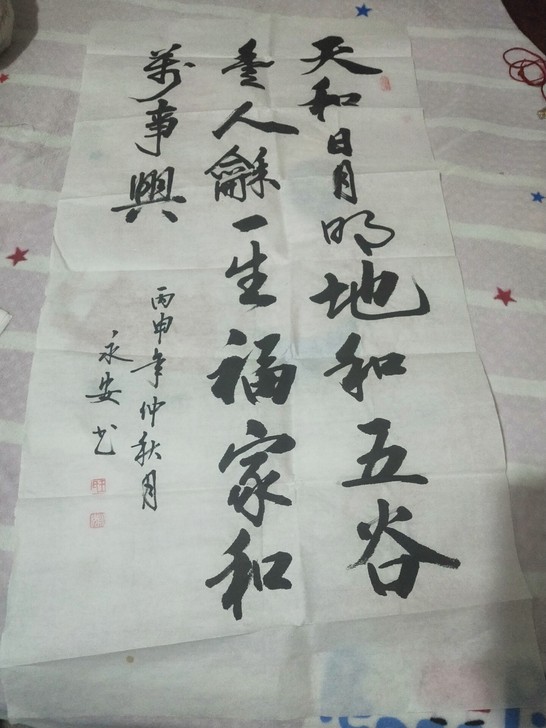 天和日月明地和五谷
登人龢一生福家和
萬事興
丙申年仲秋月
永安书